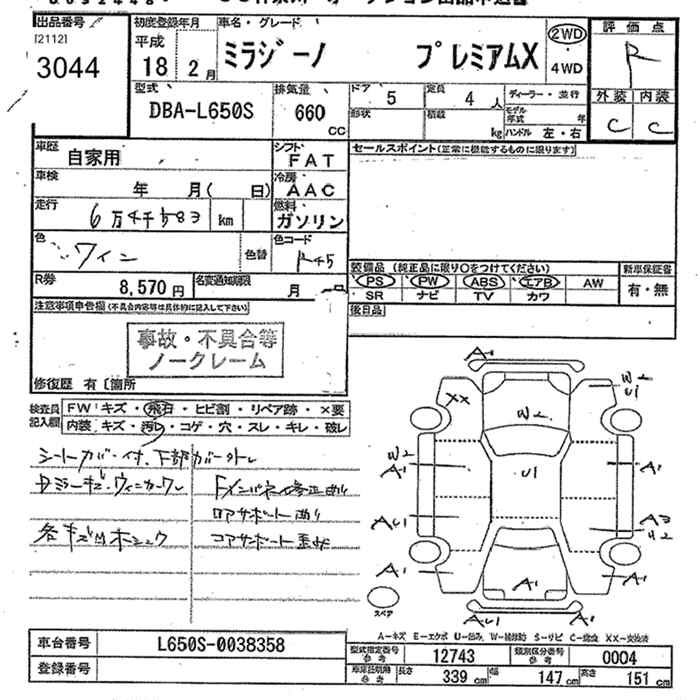 出品番号
[2112]
3044
初度登録年月
平成
18 2月
車名・グレード
ミラジーノ プレミアムX
2WD
・
4WD
評価点
R
外装 内装
C C
型式
DBA-L650S
排気量
660
CC
ドア
5
定員
4人
ディーラー・並行
形状
積載
kg
モデル年式 年
ハンドル 左・右
車歴
自家用
シフト
FAT
車検
年 月( 日)
冷房
AAC
走行
6万4千583 km
燃料
ガソリン
色
ワイン
色替
色コード
R45
R券
8,570円
名変通知期限
月 日
セールスポイント(正常に機能するものに限ります)
装備品 (純正品に限り○をつけてください)
新車保証書
PS PW ABS エアB AW
SR ナビ TV カワ
有・無
後日品
注意事項申告欄(不具合内容等は具体的に記入して下さい)
事故・不具合等
ノークレーム
修復歴 有〔箇所
検査員記入欄
FW キズ・飛石・ヒビ割・リペア跡・×要
内装 キズ・汚レ・コゲ・穴・スレ・キレ・破レ
シートカバー付、下部ガートレ
Dミラーキズ・ウィンカーワレ
Fインパネ修正あり
ロアサポートあり
コアサポート歪み
A1
W2
U1
XX
W2
U1
W2
A1
A1
AU1
A3
U2
A1
A1
A1
AU1
A1
スペア
A―キズ E―エクボ U―凹み W―補修跡 S―サビ C―腐食 XX―交換済
車台番号
L650S-0038358
登録番号
型式指定番号
参考
12743
類別区分番号
参考
0004
車庫証明用
参考
長さ
339 cm
幅
147 cm
高さ
151 cm